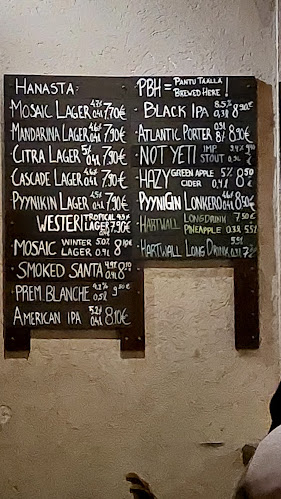 HANASTA:
MOSAIC LAGER 0.4L 7.90€
MANDARINA LAGER 4.6% 0.4L 7.90€
CITRA LAGER 5% 0.4L 7.90€
CASCADE LAGER 4.6% 0.4L 7.90€
PYYNIKIN LAGER 0.4L 7.90€
WESTERI TROPICAL LAGER 7.90€
MOSAIC WINTER LAGER 5.0% 0.4L 8.10€
SMOKED SANTA 0.4L 8.10
PREM. BLANCHE 0.5L
AMERICAN IPA 0.4L 8.10€
PBH = PANTU TÄÄLLÄ BREWED HERE!
BLACK IPA 8.5% 8.90€
ATLANTIC PORTER 8.90€
NOT YETI IMP. STOUT
HAZY GREEN APPLE CIDER 5% 0.4L
PYYNIGIN LONKERO 8.50€
HARTWALL LONGDRINK 7.50€
PINEAPPLE
HARTWALL LONG DRINK